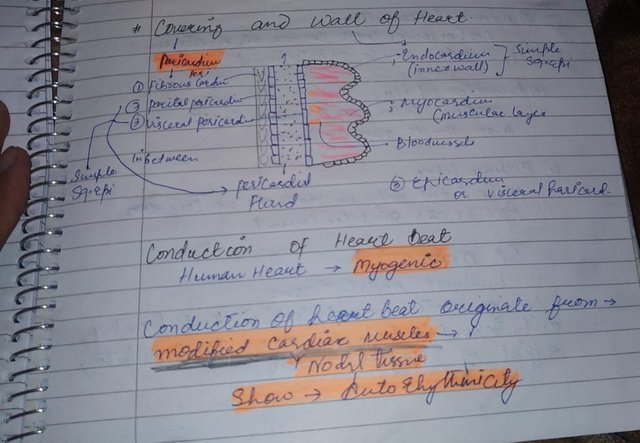 * Covering and Wall of Heart
Pericardium
① Fibrous Cardiu
Peri
② parital pericardiu
③ visceral pericardiu
Inbetween
Simple
Sq. epi
pericardial
Fluid
Endocardium
(inner wall)
Simple
Sq. epi
Myocardium
(muscular layer
Bloodvessel
③ Epicardium
or visceral paricard.
Conduction of Heart beat
Human Heart → Myogenic
Conduction of heart beat originate from →
modified cardiac muscles →
Nodal tissue
Show → Auto Rhythmicity